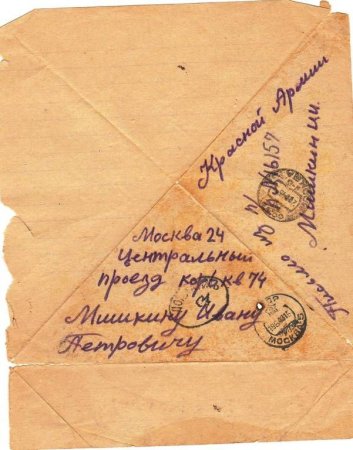 Москва 24
Центральный
проезд кор кв 74
Мишкину Ивану
Петровичу
Письмо из Красной Армии
п/
16157
Мишкин
МОСКВА